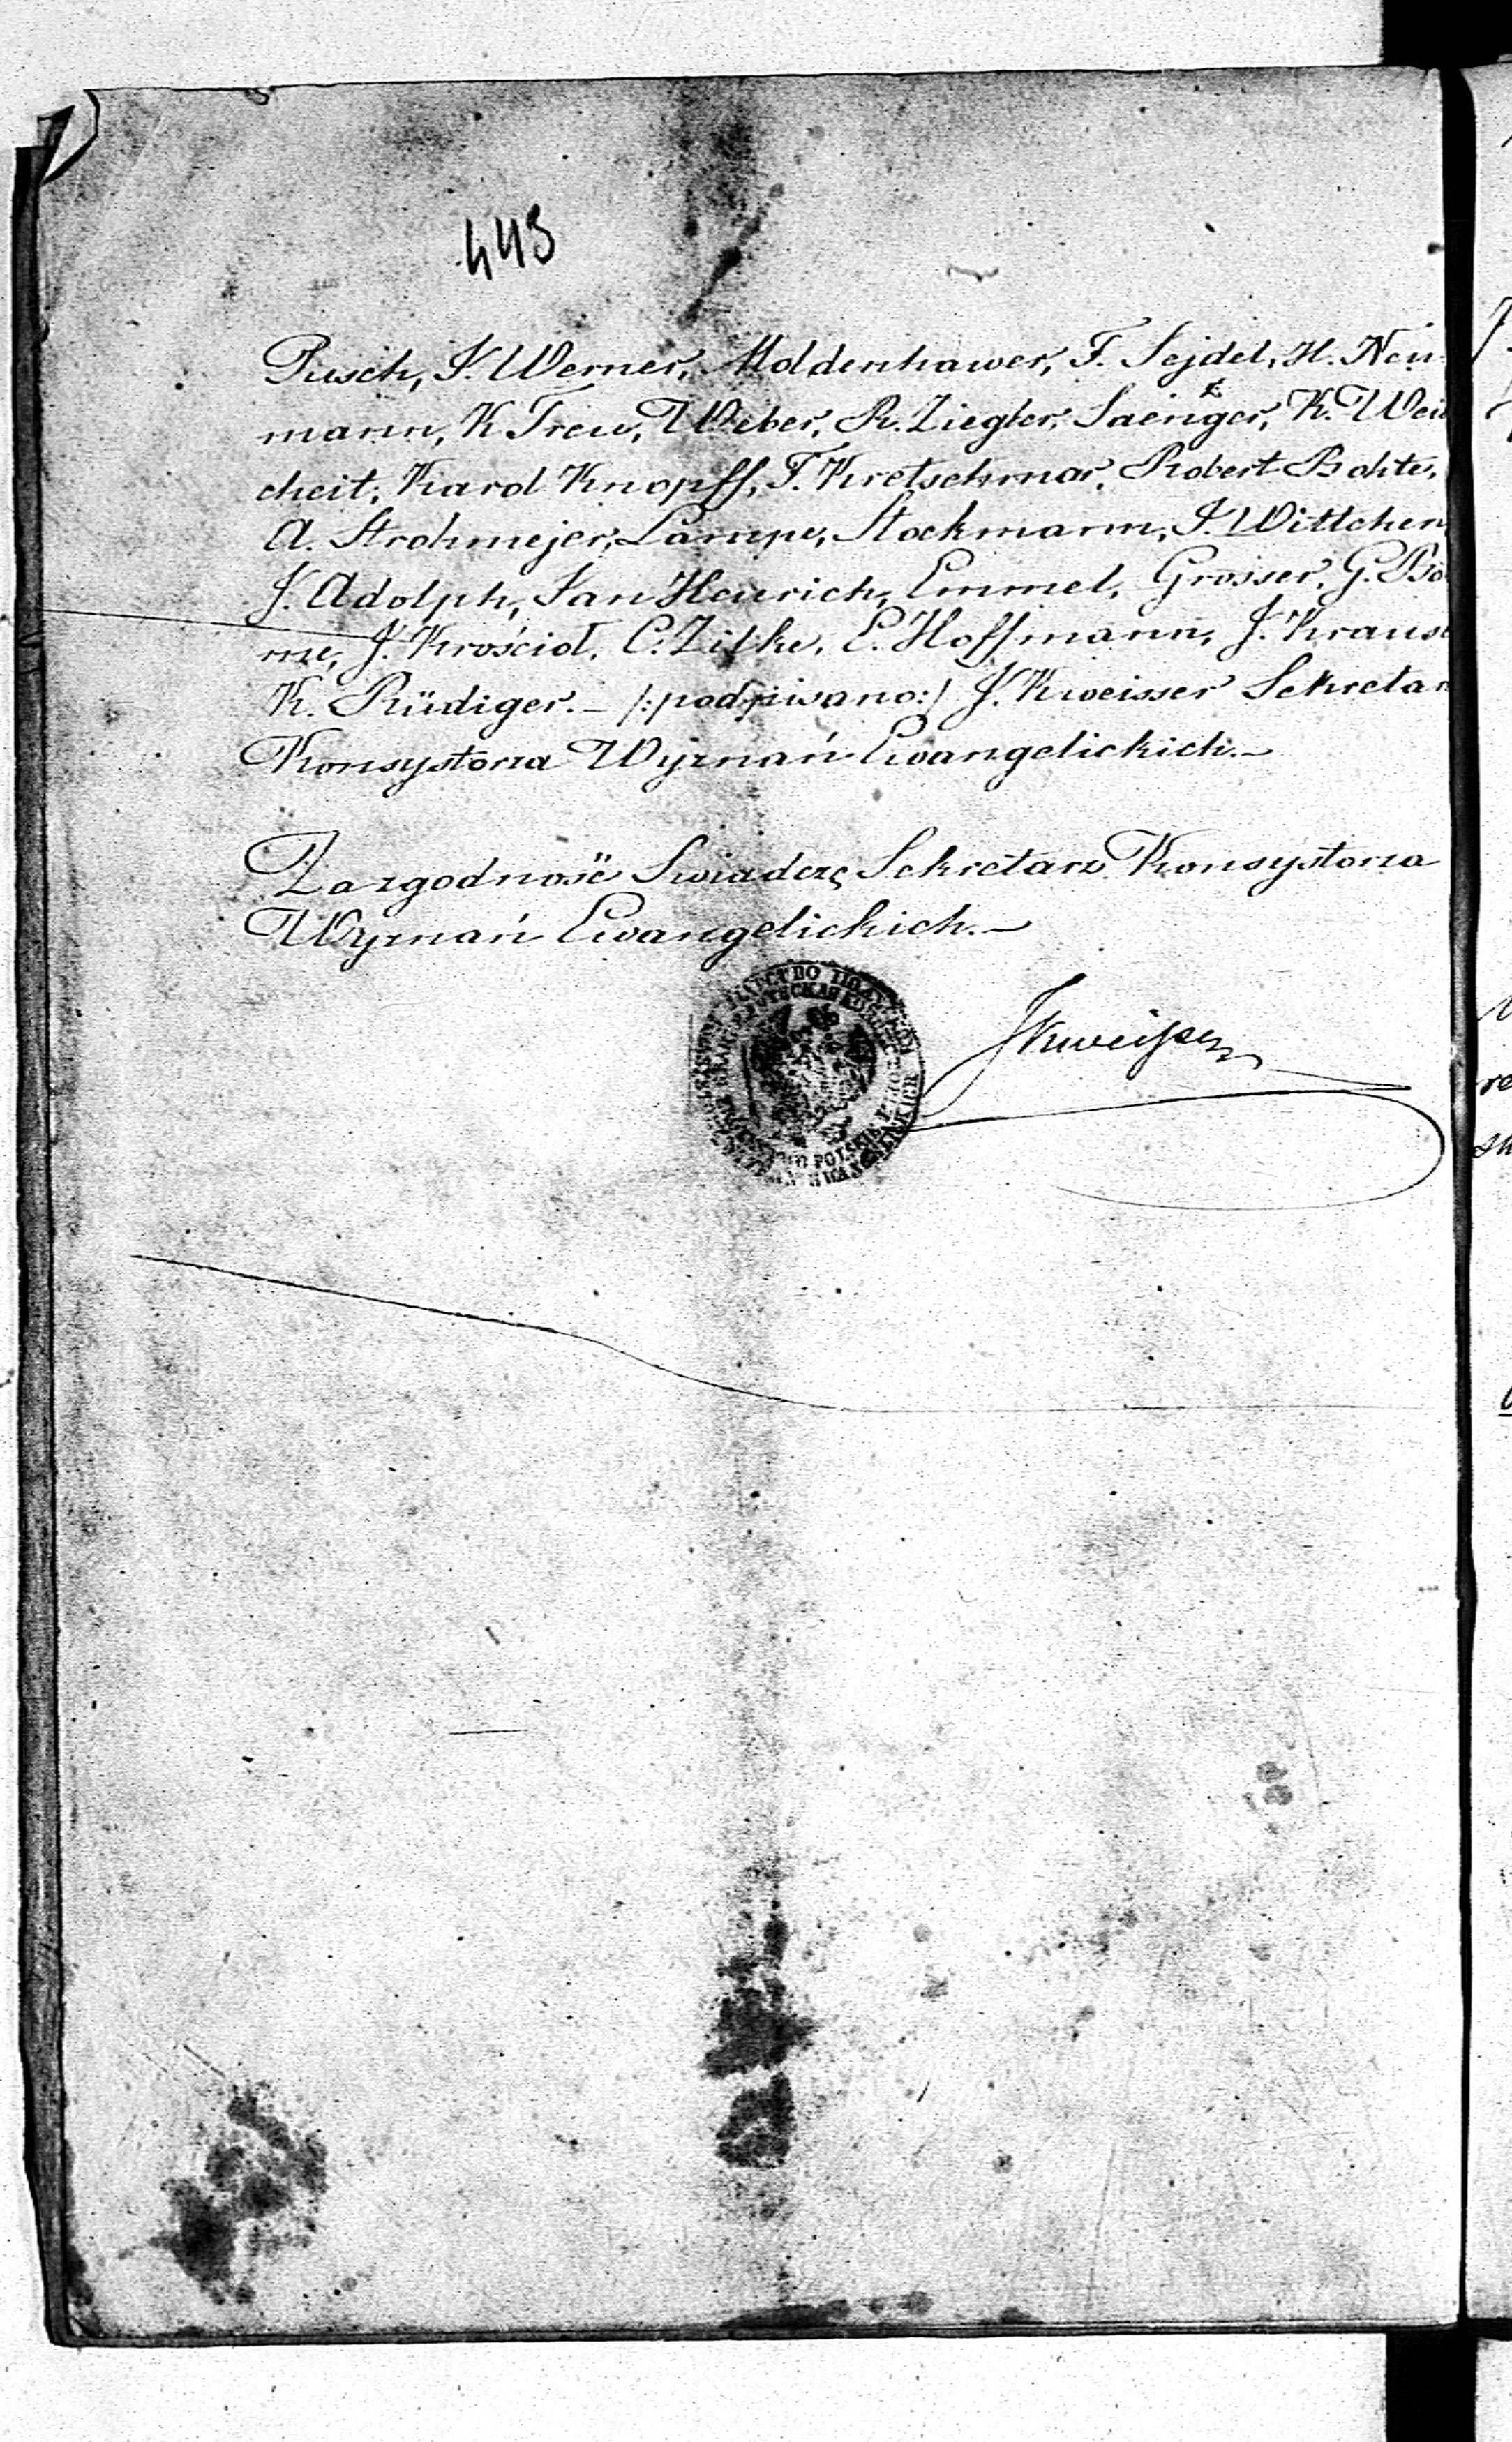 443
Pusch, J. Werner, Moldenhawer, F. Sejdel, H. Neu-
mann, K Treu, Weber, R. Ziegler, Saenger, K. Wei
cheit, Karol Knopff, F. Kretschmar, Robert Bohte,
A. Strohmejer, Lampe, Stockmann, J. Wittchen
J. Adolph, Jan Heurich, Emmel, Grosser, G. Bö
me, J. Krościoł, C. Zilke, E. Hoffmann, J. Kraus
K. Rüdiger. – /:podpisano:/ J. Kweisser Sekretar
Konsystorza Wyznań Ewangelickich. –
Za zgodność Swiadczę Sekretarz Konsystorza
Wyznań Ewangelickich. –
JKweisser